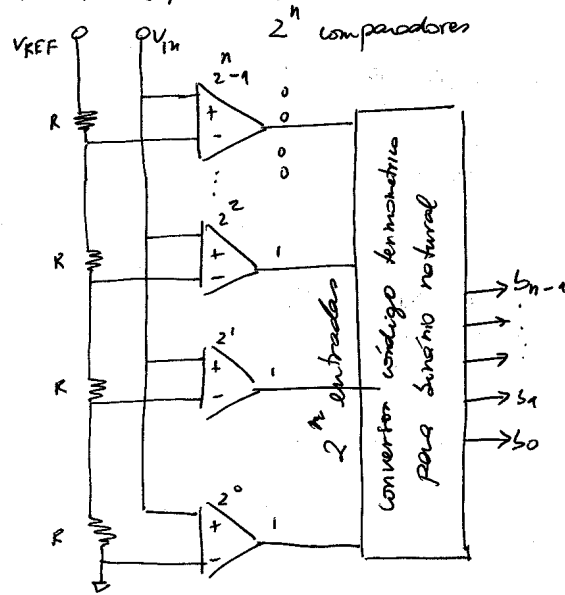 2ⁿ comparadores
VREF
Vin
2ⁿ-1
R
+
-
0
0
0
0
⋮
2²
R
+
-
1
2¹
R
+
-
1
2⁰
R
+
-
1
2ⁿ entradas
conversor código termométrico
para binário natural
bn-1
⋮
b1
b0